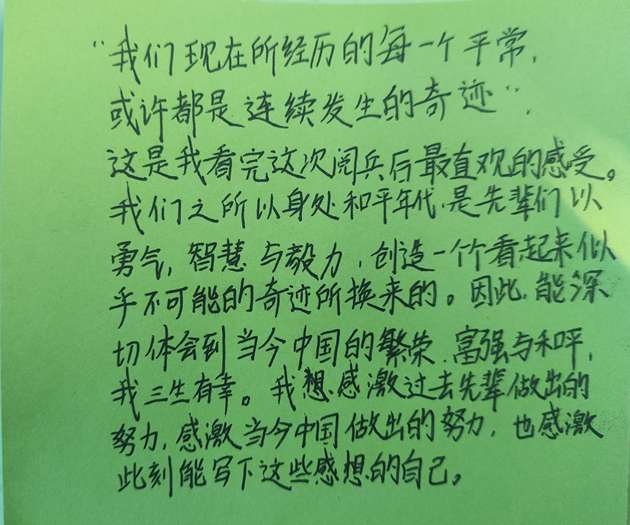 “我们现在所经历的每一个平常，
或许都是连续发生的奇迹”，
这是我看完这次阅兵后最直观的感受。
我们之所以身处和平年代，是先辈们以
勇气，智慧与毅力，创造一个个看起来似
乎不可能的奇迹所换来的。因此，能深
切体会到当今中国的繁荣、富强与和平，
我三生有幸。我想感激过去先辈做出的
努力，感激当今中国做出的努力，也感激
此刻能写下这些感想的自己。